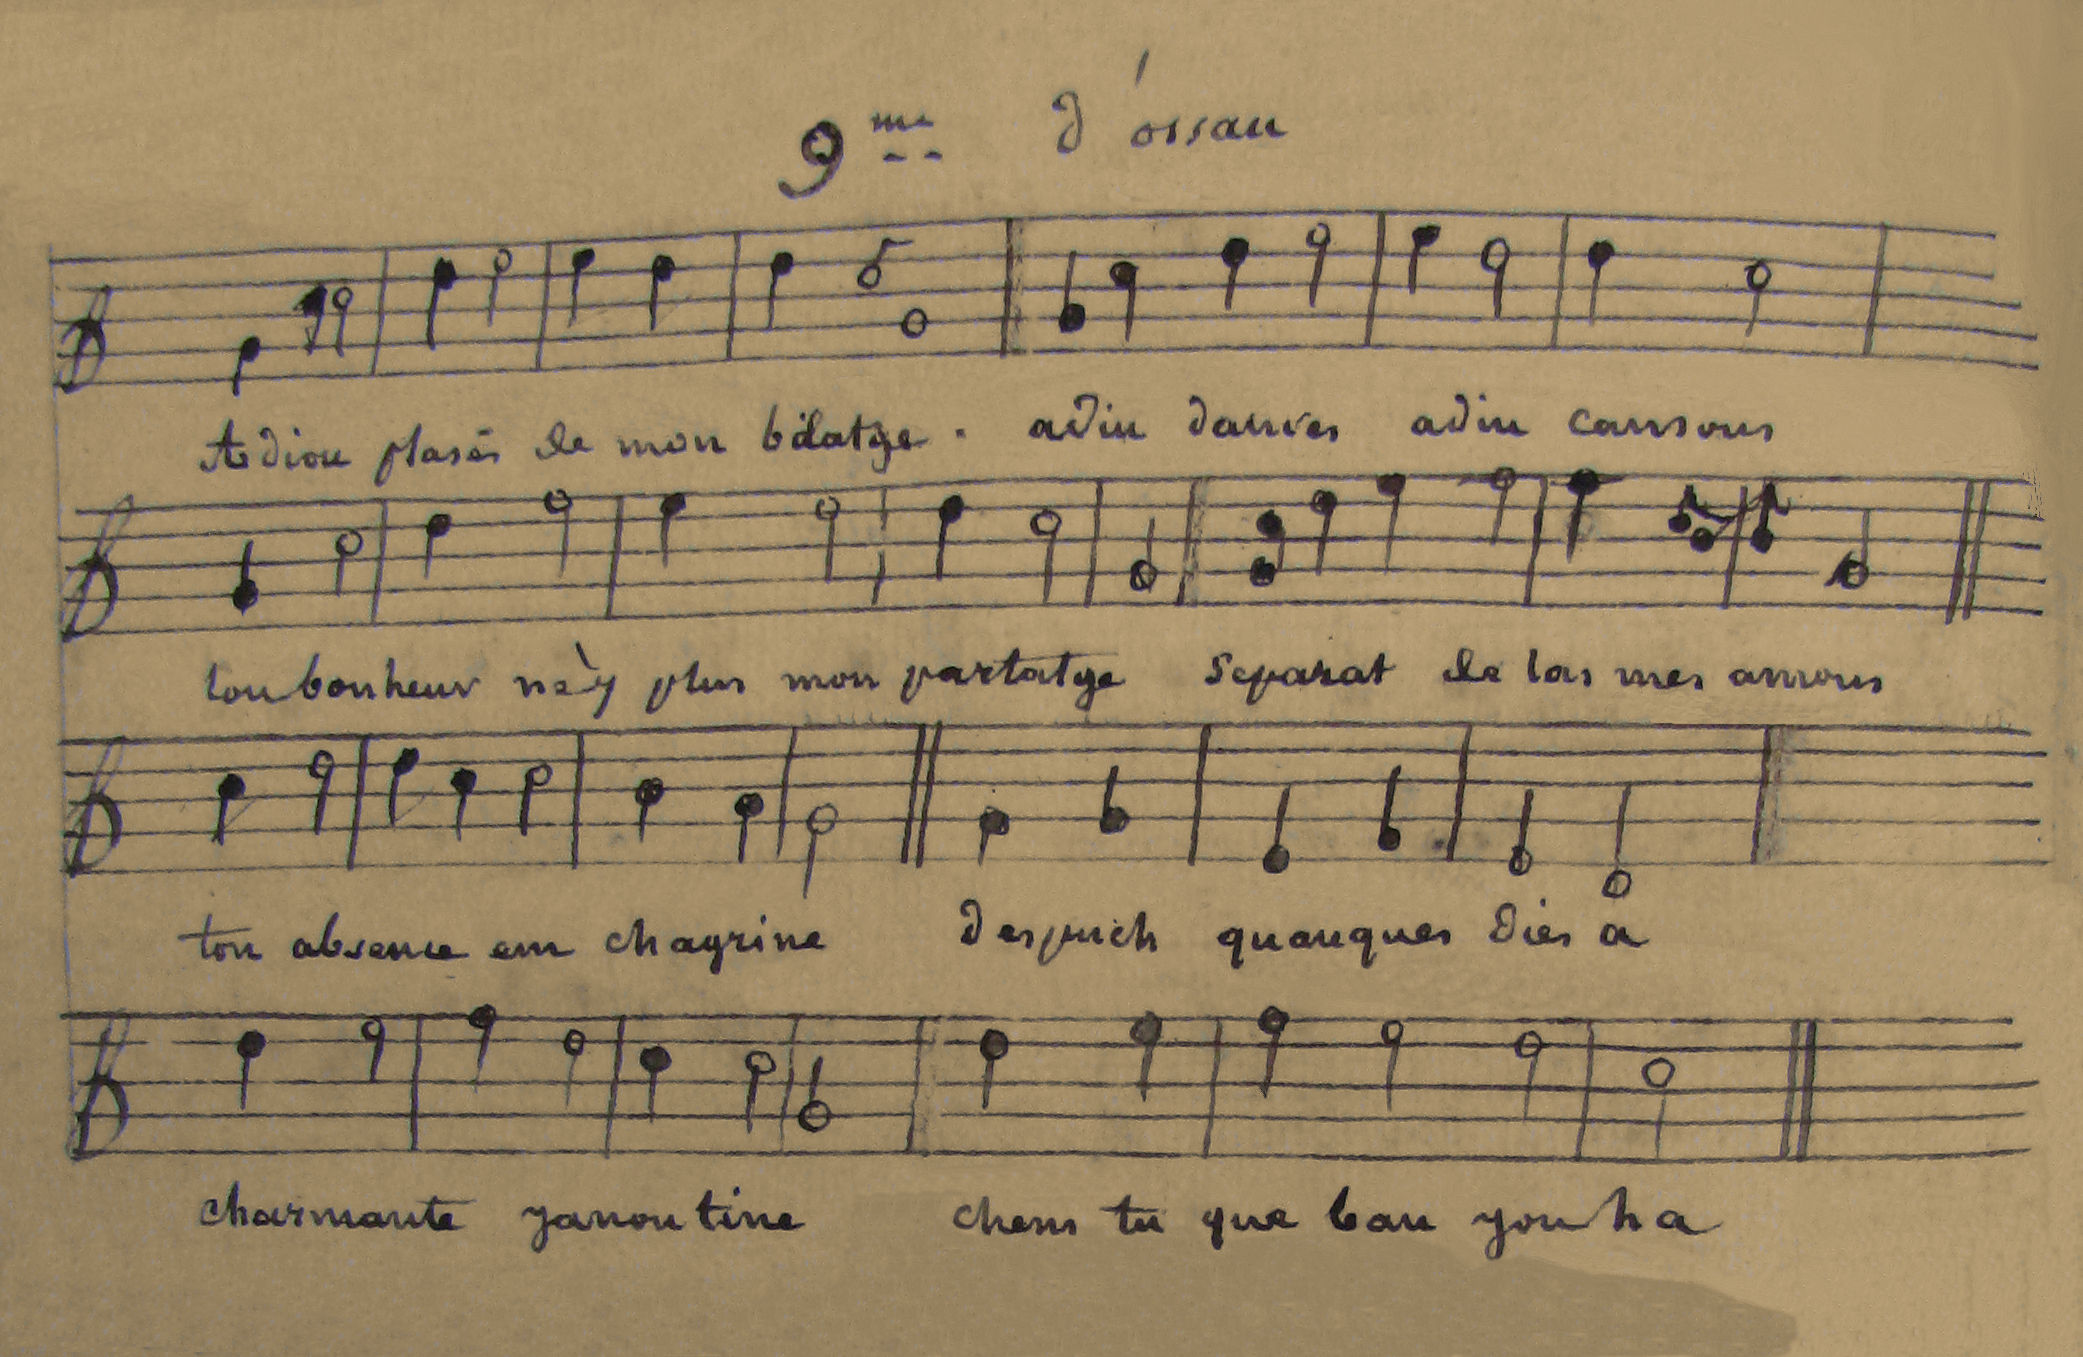 9me d'ossau
Adiou plasés de mon bilatge. adiu danses adiu cansous
lou bonheur nèy plus mon partatge Separat de las mes amous
ton absence em chagrine despuch quauques dies a
charmante yanoutine chens tu que bau you ha